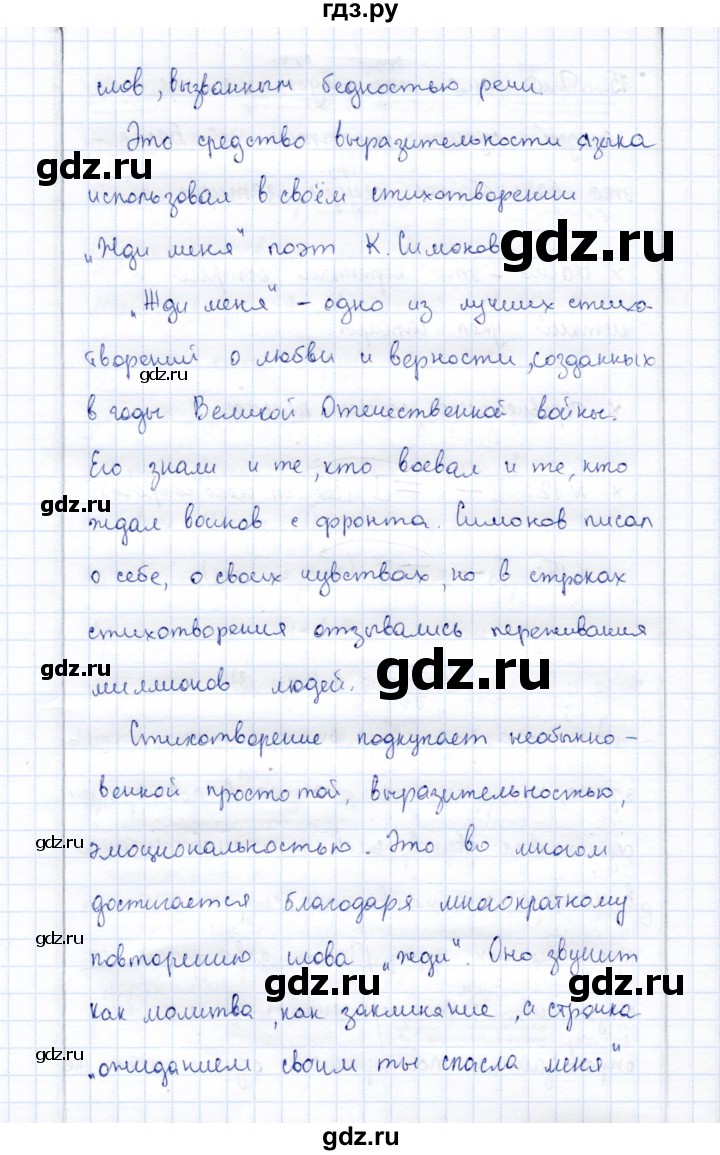 гдз.ру
слов, вызванным бедностью речи
Это средство выразительности языка
gdz.ru
использовал в своём стихотворении
„Жди меня" поэт К. Симонов
gdz.ru
„Жди меня" – одно из лучших стихо-
творений о любви и верности, созданных
gdz.ru
в годы Великой Отечественной войны.
Его знали и те, кто воевал и те, кто
gdz.ru
ждал воинов с фронта. Симонов писал
о себе, о своих чувствах, но в строках
стихотворения отзывались переживания
gdz.ru
миллионов людей.
gdz.ru
Стихотворение подкупает необыкно-
венной простотой, выразительностью,
gdz.ru
эмоциональностью. Это во многом
достигается благодаря многократному
gdz.ru
повторению слова „жди". Оно звучит
gdz.ru
gdz.ru
как молитва, как заклинание, а строчка
gdz.ru
„ожиданием своим ты спасла меня"
gdz.ru